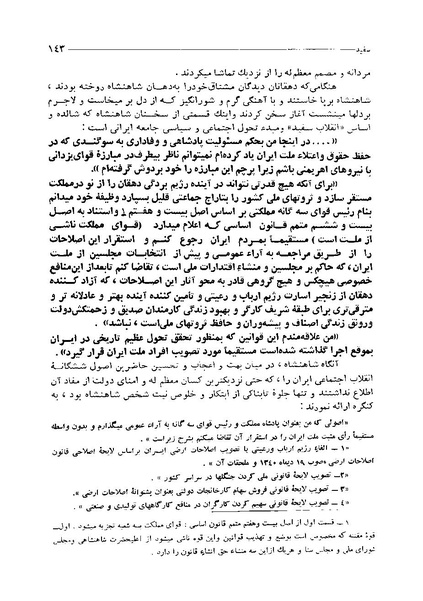 سفید ۱۴۳
مردانه و مصمم معظم‌له را از نزدیک تماشا میکردند.
هنگامی‌که دهقانان دیدگان مشتاق‌خودرا به‌دهان شاهنشاه دوخته بودند ،
شاهنشاه بپا خاستند و با آهنگی گرم و شورانگیز که از دل بر میخاست و لاجرم
بردلها مینشست آغاز سخن کردند واینك قسمتی از سخنان شاهنشاه که شالده و
اساس «انقلاب سفید» ومبدء تحول اجتماعی و سیاسی جامعه ایرانی است :
«.... در اینجا من بحکم مسئولیت پادشاهی و وفاداری به سوگندی که در
حفظ حقوق واعتلاء ملت ایران یاد کرده‌ام نمیتوانم ناظر بیطرف‌در مبارزهٔ قوای‌یزدانی
با نیروهای اهریمنی باشم زیرا پرچم این مبارزه را خود بردوش گرفته‌ام ».
«برای آنکه هیچ قدرتی نتواند در آینده رژیم بردگی دهقان را از نو درمملکت
مستقر سازد و ثروتهای ملی کشور را بتاراج جماعتی قلیل بسپارد وظیفهٔ خود میدانم
بنام رئیس قوای سه گانه مملکتی بر اساس اصل بیست و هفتم ۱ واستناد به اصل
بیست و ششم متمم قانون اساسی که اعلام میدارد (قوای مملکت ناشی
از ملت است ) مستقیماً بمردم ایران رجوع کنم و استقرار این اصلاحات
را از طریق مراجعه به آراء عمومی و پیش از انتخابات مجلسین از ملت
ایران ، که حاکم بر مجلسین و منشاء اقتدارات ملی است ، تقاضا کنم تابعداز این‌منافع
خصوصی هیچکس و هیچ گروهی قادر به محو آثار این اصلاحات ، که آزاد کننده
دهقان از زنجیر اسارت رژیم ارباب و رعیتی و تأمین کننده آینده بهتر و عادلانه تر و
مترقی‌تری برای طبقهٔ شریف کارگر و بهبود زندگی کارمندان صدیق و زحمتکش‌دولت
ورونق زندگی اصناف و پیشه‌وران و حافظ ثروتهای ملی‌است ، نباشد» .
«من علاقه‌مندم این قوانین که بمنظور تحقق تحول عظیم تاریخی در ایران
بموقع اجرا گذاشته شده‌است مستقیماً مورد تصویب افراد ملت ایران قرار گیرد» .
آنگاه شاهنشاه ، در میان بهت و اعجاب و تحسین حاضرین اصول ششگانهٔ
انقلاب اجتماعی ایران را ، که حتی نزدیکترین کسان معظم له و امنای دولت از مفاد آن
اطلاع نداشتند و تنها جلوهٔ تابناکی از ابتکار و خلوص نیت شخص شاهنشاه بود ، به
کنگره ارائه نمودند :
«اصولی که من بعنوان پادشاه مملکت و رئیس قوای سه گانه به آراء عمومی میگذارم و بدون واسطه
مستقیماً رأی مثبت ملت ایران را در استقرار آن تقاضا میکنم بشرح زیراست :
«۱ـ الغاء رژیم ارباب ورعیتی با تصویب اصلاحات ارضی ایران براساس لایحهٔ اصلاحی قانون
اصلاحات ارضی مصوب ۱۹ دیماه ۱۳۴۰ و ملحقات آن» .
«۲ـ تصویب لایحهٔ قانونی ملی کردن جنگلها در سراسر کشور » .
«۳ـ تصویب لایحهٔ قانونی فروش سهام کارخانجات دولتی بعنوان پشتوانهٔ اصلاحات ارضی » .
«۴ـ تصویب لایحهٔ قانونی سهیم کردن کارگران در منافع کارگاههای تولیدی و صنعتی » .
۱ ـ قسمت اول از اصل بیست وهفتم متمم قانون اساسی : قوای مملکت سه شعبه تجزیه میشود . اول‌ـ
قوهٔ مقننه که مخصوص است بوضع و تهذیب قوانین واین قوه ناشی میشود از اعلیحضرت شاهنشاهی ومجلس
شورای ملی و مجلس سنا و هریك ازاین سه منشاء حق انشاء قانون را دارد .